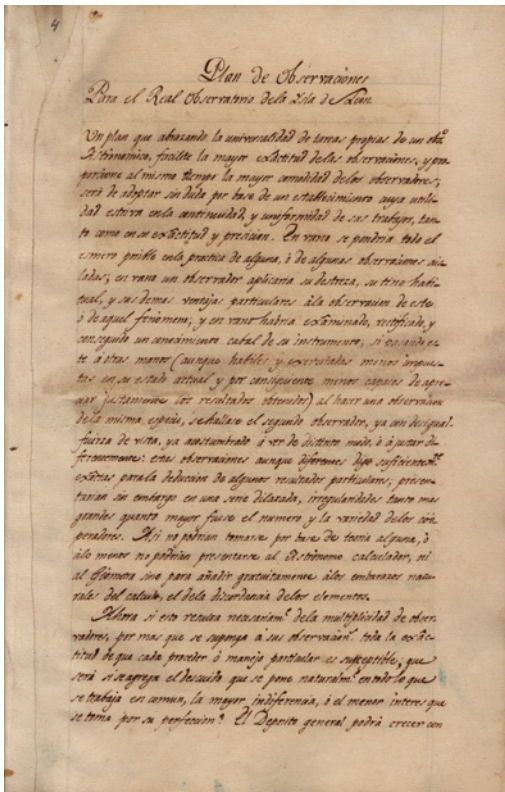 4
Plan de Observaciones
Para el Real Observatorio de la Isla de Leon.
Un plan que abrazando la universalidad de tareas propias de un obs.º
Astronomico, facilite la mayor exâctitud de las observaciones, y pro-
porcione al mismo tiempo la mayor comodidad de los observadores;
será de adoptar sin duda por base de un establecimiento cuya utili-
dad estriva en la continuidad, y uniformidad de sus trabajos, tan-
to como en su exâctitud y precision. En vano se pondria todo el
esmero posible en la practica de alguna, ó de algunas observaciones ais-
ladas; en vano un observador aplicaria su destreza, su tino habi-
tual, y sus demas ventajas particulares à la observacion de este
ó de aquel fenómeno; y en vano habria exâminado, rectificado, y
conseguido un conocimiento cabal de su instrumento; si pasando es-
te á otras manos (aunque habiles y exercitadas menos impues-
tas en su estado actual y por consiguiente menos capaces de apre-
ciar justamente los resultados obtenidos) al hacer una observacion
de la misma especie, se hallase el segundo observador, ya con desigual
fuerza de vista, ya acostumbrado á ver de distinto modo, ò à juzgar di-
ferentemente: estas observaciones aunque diferentes digo suficientem.te
exâctas para la deduccion de algunos resultados particulares, presen-
tarian sin embargo en una serie dilatada, irregularidades tanto mas
grandes quanto mayor fuese el numero y la variedad de los coo-
peradores. Asi no podrian tomarse por base de teoria alguna, ò
à lo menos no podrian presentarse al Astrónomo calculador, ni
al Geómetra sino para añadir gratuitamente à los embarazos natu-
rales del calculo, el de la discordancia de los elementos.
Ahora si esto resulta necesariam.te de la multiplicidad de obser-
vadores, por mas que se suponga à sus observacion.s toda la exâc-
titud de que cada proceder ó manejo particular es susceptible; que
será si se agrega el descuido que se pone naturalm.te en todo lo que
se trabaja en comun, la mayor indiferencia, ó el menor interes que
se toma por su perfeccion? El Deposito general podrá crecer con